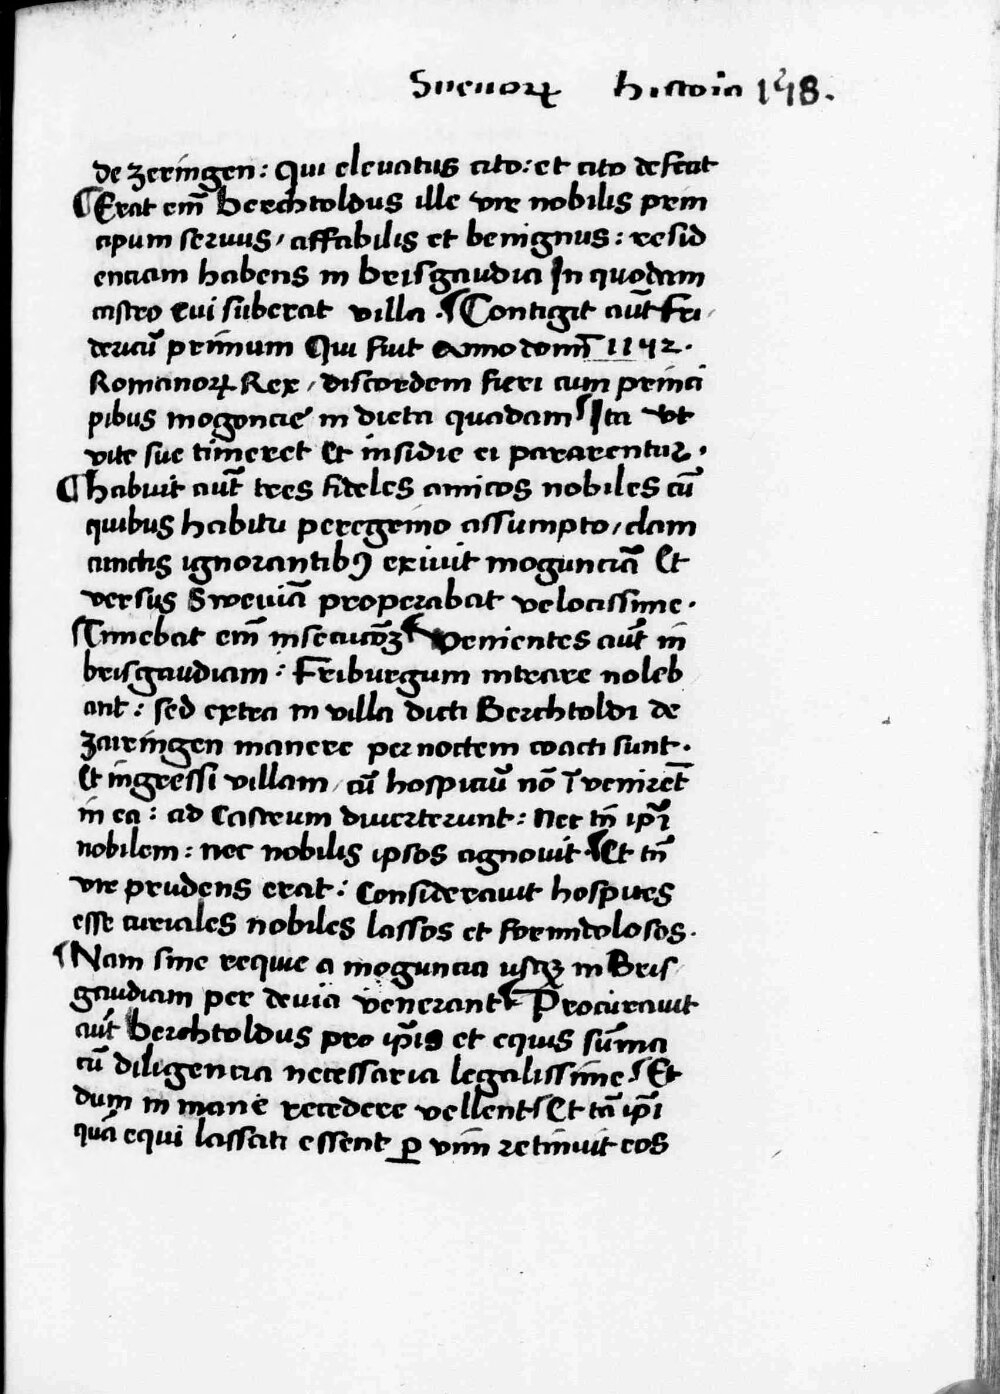 Sueuorꝝ historia 148.
de zeringen: Qui eleuatus cito: et cito defecit
¶Erat em̄ Berchtoldus ille vir nobilis prin
cipum seruus, affabilis et benignus: resid
enciam habens in brisgaudia In quodam
castro cui suberat villa. ¶Contigit aut̄ Fri
dericū primum Qui fuit Anno domī 1152.
Romanorꝝ Rex, discordem fieri cum princi
pibus mogoncie in dieta quadam ¶Ita vt
vite sue timeret Et insidie ei pararentur.
¶habuit aut̄ tres fideles amicos nobiles cū
quibus habitu peregrino assumpto, clam
cunctis ignorantibꝫ exiuit mogunciā Et
versus Sweuiā properabat velocissime.
¶Timebat em̄ insecutōꝫ ¶Venientes aut̄ in
brisgaudiam: Friburgum intrare noleb
ant: sed extra in villa dicti Berchtoldi de
Zairingen manere per noctem coacti sunt.
Et ingressi villam, cū hospiciū nō īvenirēt
in ea: ad Castrum diuerterunt: Nec tn̄ ip̄i
nobilem: nec nobilis ipsos agnouit. ¶Et tn̄
vir prudens erat: Considerauit hospites
esse curiales nobiles lassos et formidolosos.
¶Nam sine requie a moguncia usqꝫ in Bris
gaudiam per deuia venerant ¶Procurauit
aut̄ Berchtoldus pro ip̄is et equis sūma
cū diligencia necessaria legalissime. ¶Et
dum in mane recedere vellent ¶Et tā ip̄i
quā equi lassati essent ꝑ vim retinuit eos